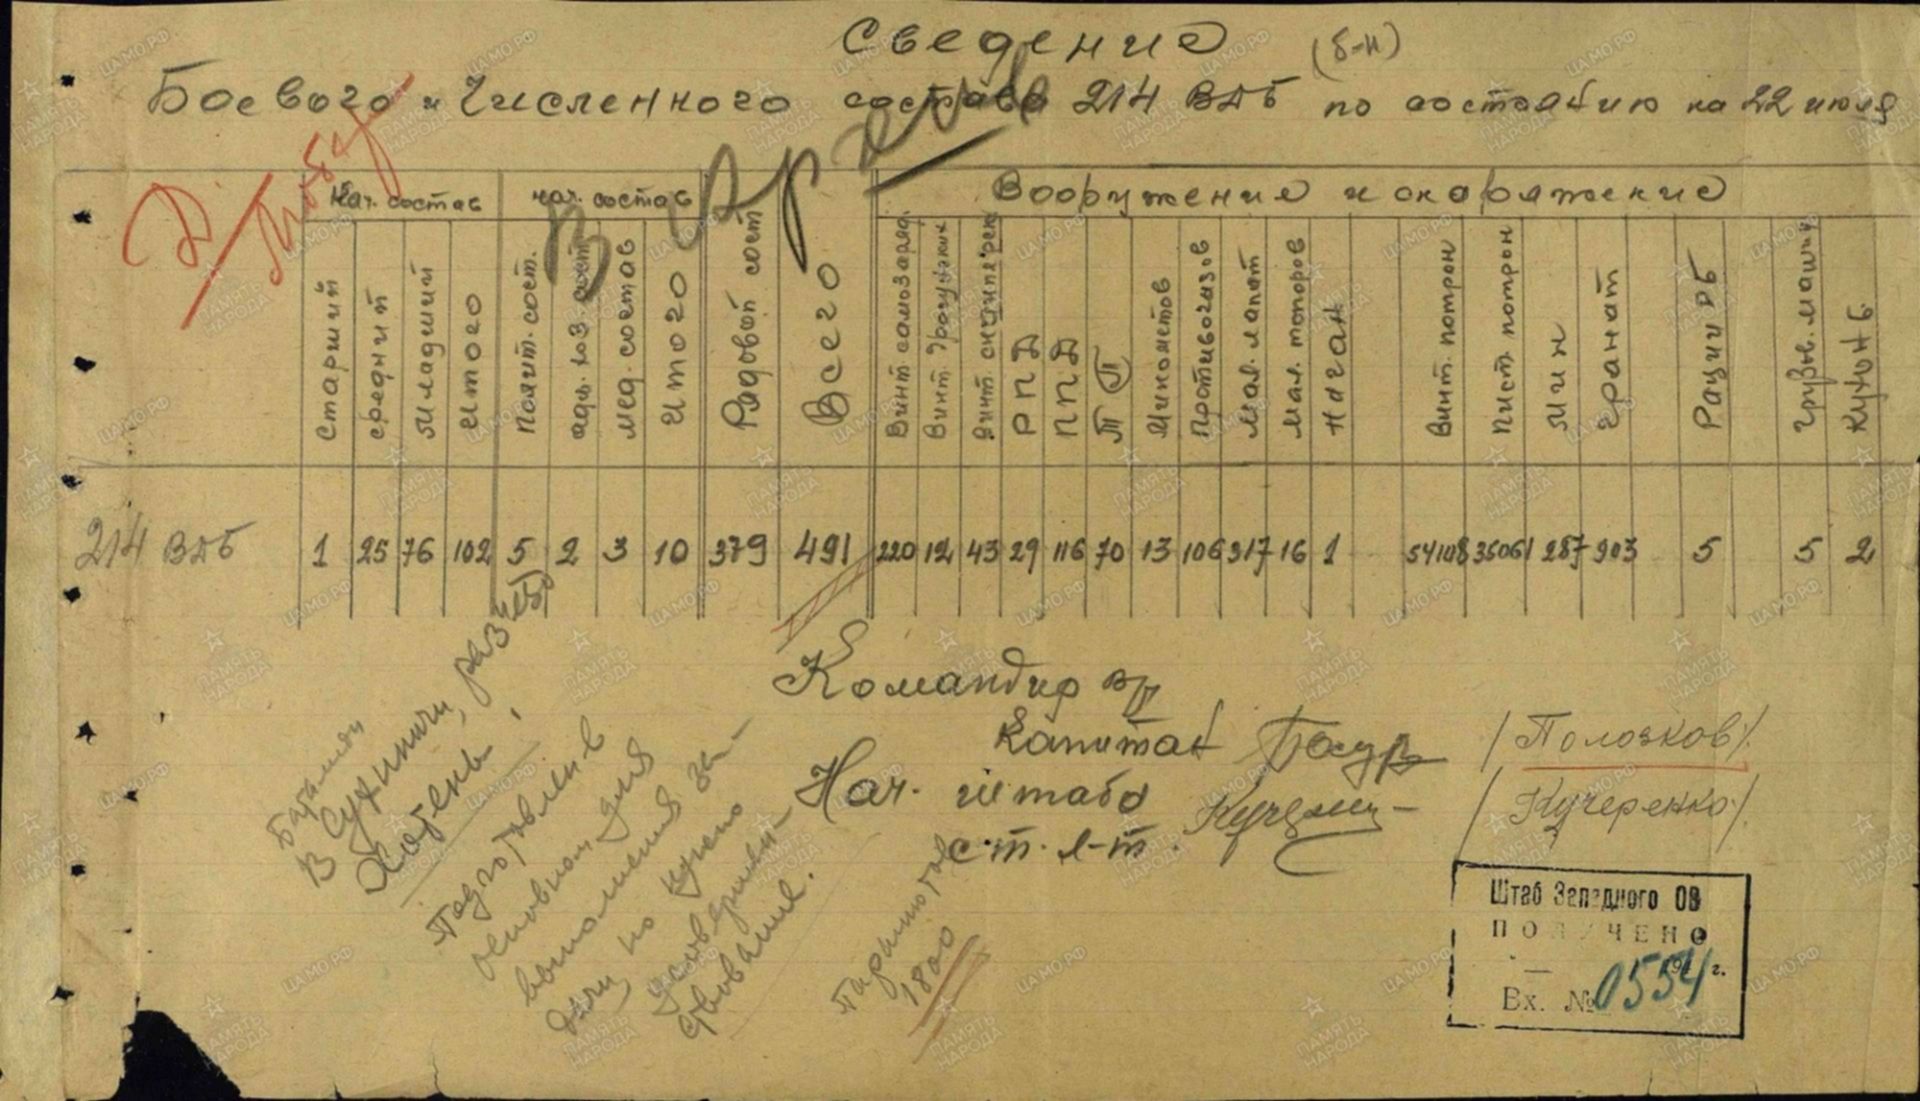 Сведение (б-н)
Боевого и численного состава 214 ВДБ по состоянию на 22 июля
Нач. состав
нач. состав
Вооружение и снаряжение
Старший
средний
младший
итого
Полит. сост.
адм. хоз. сост.
мед. состав
итого
Рядовой сост
Всего
Винт. самозаряд.
Винт.
Винт. снайпер.
РПД
ППД
ТТ
Минометов
Противогазов
Мал. лопат
Мал. топоров
Наган
Винт. патрон
Пист. патрон
Мин
Гранат
Рации РБ
Грузов. машин
Кухонь
214 ВДБ 1 25 76 102 5 2 3 10 379 491 220 12 43 29 116 70 13 106 317 16 1 54108 35061 287 903 5 5 2
Командир
Капитан /Полозков/
Нач. штаба
ст. л-т. /Кучеренко/
Батальон
в Сухиничи,
Хотень.
Подготовлен в
основном для
выполнения за-
дачи, но нужно
усовершен-
ствование.
Парашютов
1800
Штаб Западного ОВ
ПОЛУЧЕНО
г.
Вх. № 0554
ПАМЯТЬ НАРОДА
ЦАМО.РФ